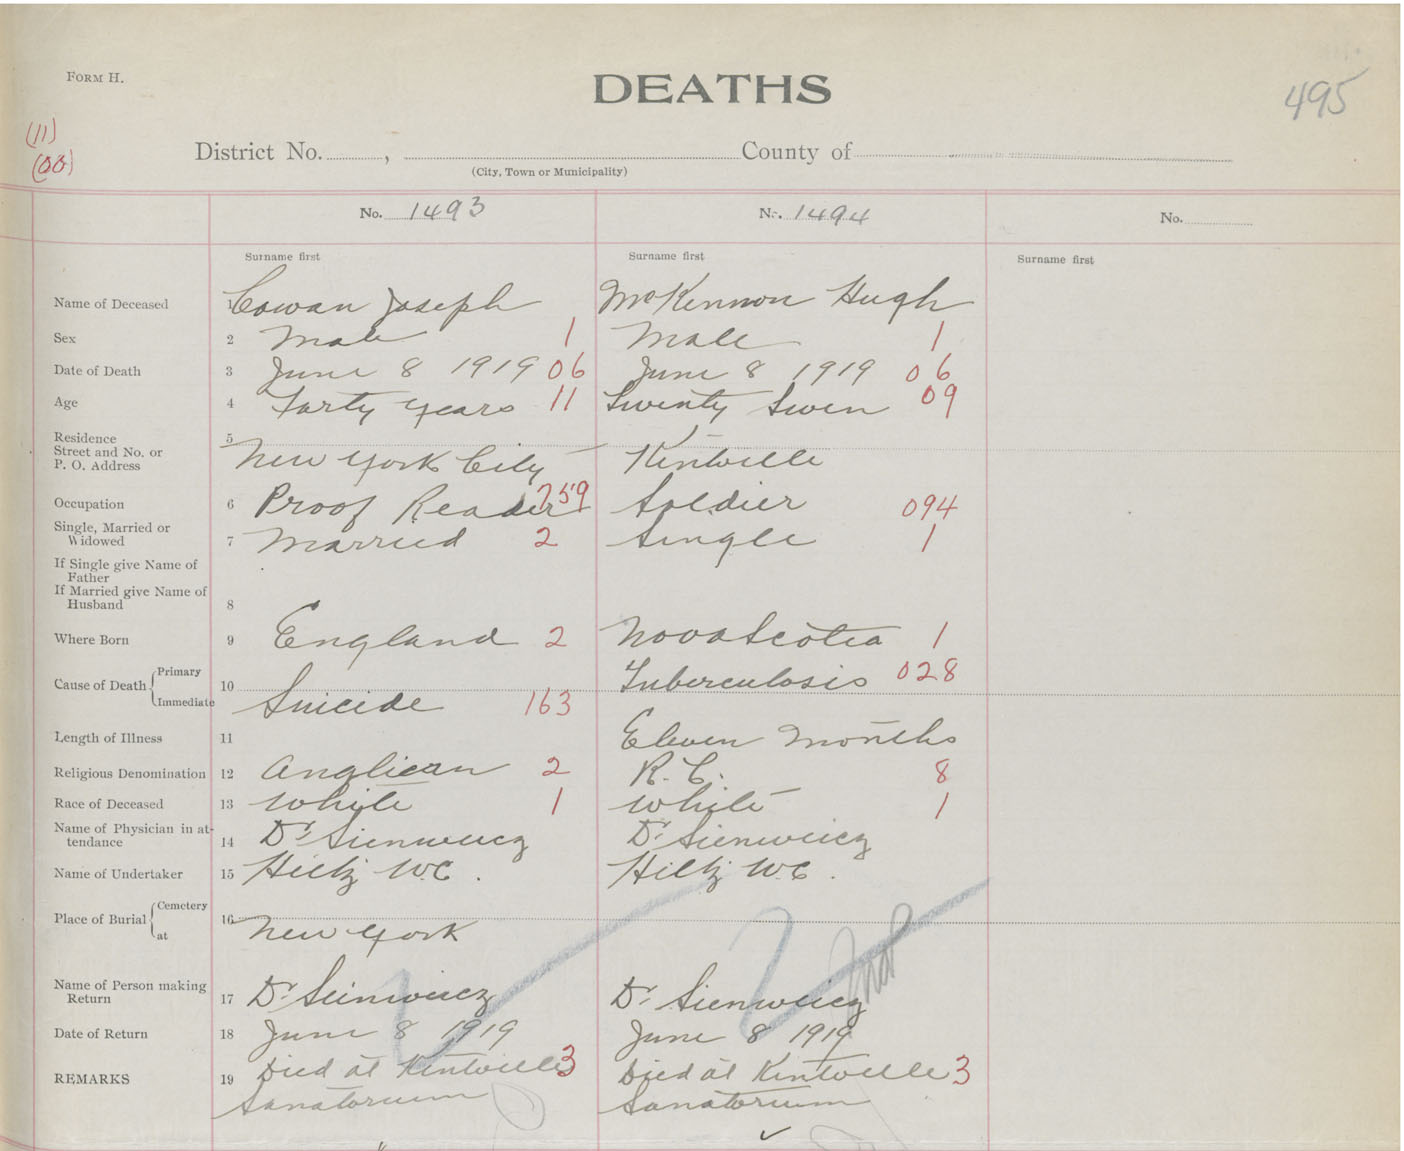 FORM H.
DEATHS
495
(11)
(00)
District No. , County of
(City, Town or Municipality)
No. 1493 No. 1494 No.
Surname first Surname first Surname first
Name of Deceased 1 Cowan Joseph McKennon Hugh
Sex 2 Male 1 Male 1
Date of Death 3 June 8 1919 06 June 8 1919 06
Age 4 Forty Years 11 Twenty Seven 09
Residence 5
Street and No. or
P. O. Address New York City Kentville
Occupation 6 Proof Reader 759 Soldier 094
Single, Married or
Widowed 7 Married 2 Single 1
If Single give Name of
Father
If Married give Name of
Husband 8
Where Born 9 England 2 Nova Scotia 1
Cause of Death Primary 10 Tuberculosis 028
Immediate Suicide 163
Length of Illness 11 Eleven Months
Religious Denomination 12 Anglican 2 R. C. 8
Race of Deceased 13 White 1 White 1
Name of Physician in at-
tendance 14 Dr Sienweicz Dr Sienweicz
Name of Undertaker 15 Hiltz W.C. Hiltz W C.
Place of Burial Cemetery 16
at New York
Name of Person making
Return 17 Dr Seinweicz Dr Sienweicz
Date of Return 18 June 8 1919 June 8 1919
REMARKS 19 Died at Kentville 3 Died at Kentville 3
Sanatorium Sanatorium